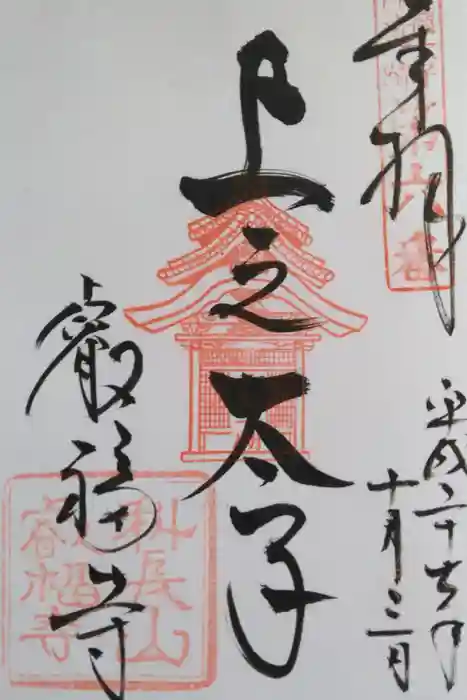 奉拝
第六番
平成二十七年
十月三日
上之太子
叡福寺
科長山
叡福寺